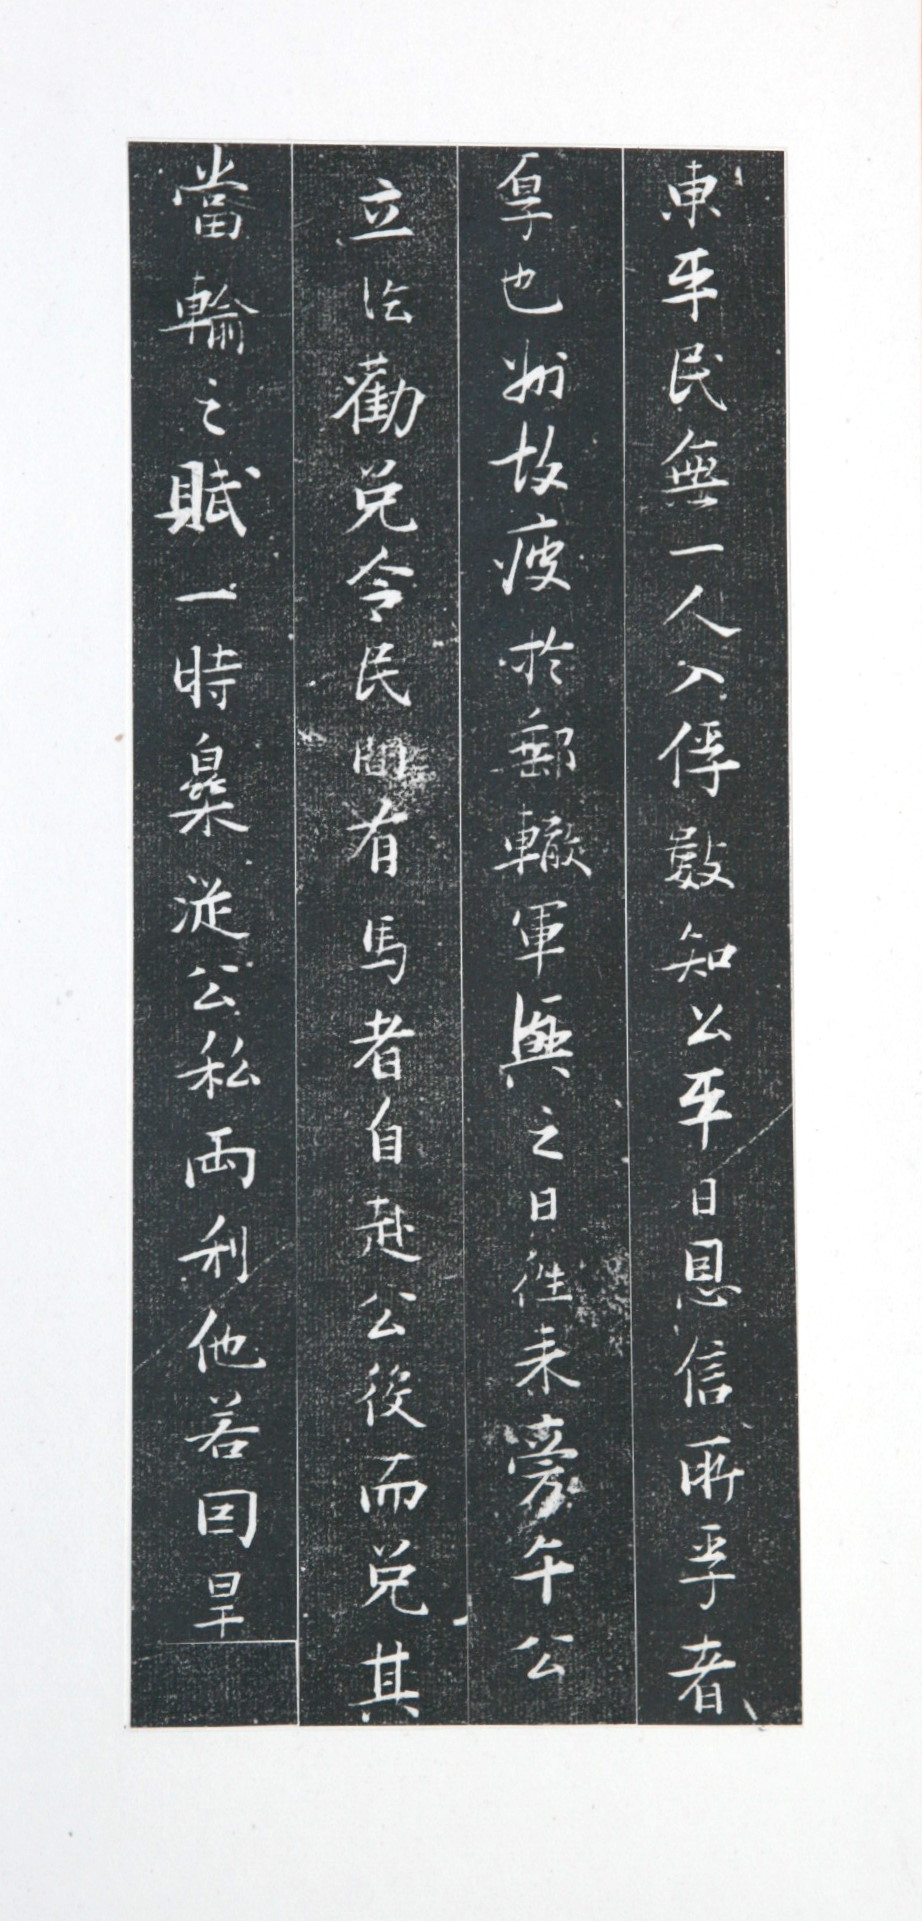 東平民無一人入俘數知公平日恩信所孚者
厚也州故疲於郵轍軍興之日往來旁午公
立法勸兌令民間有馬者自赴公役而兌其
當輸之賦一時臬従公私両利他若因旱